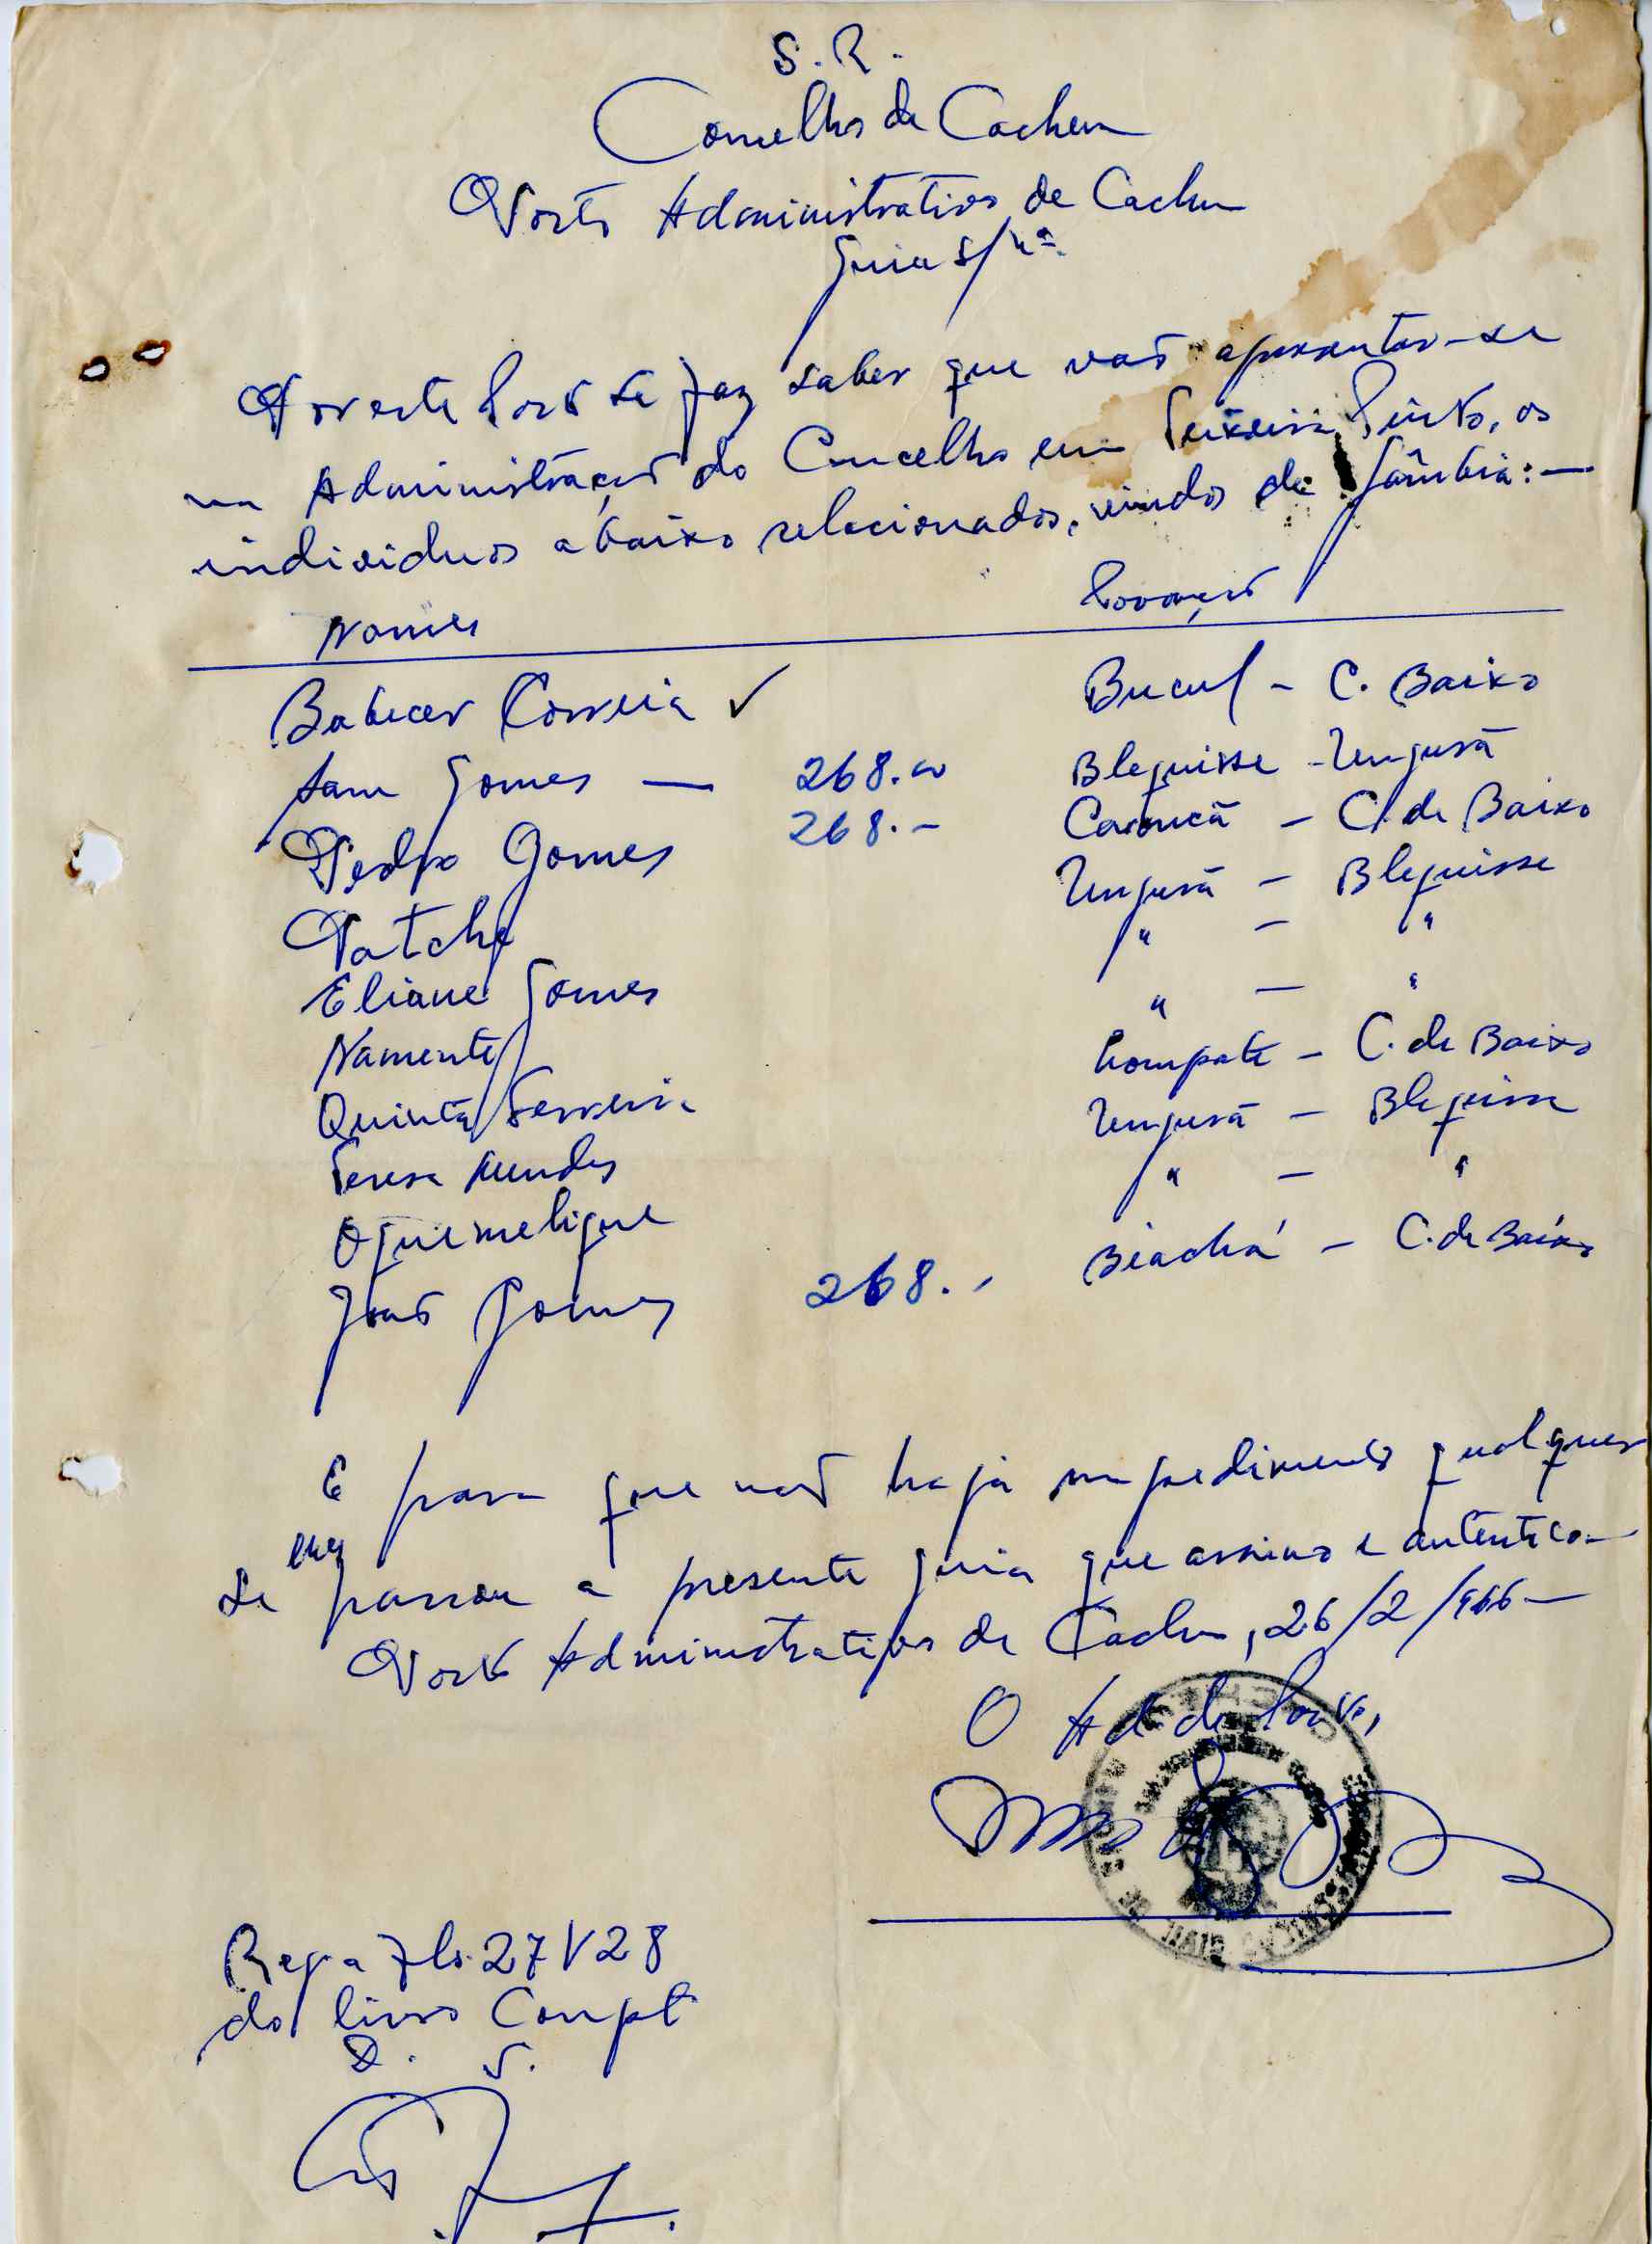 S. R.
Concelho de Cacheu
Posto Administrativo de Cacheu
Guia S/nº.
Por este Posto se faz saber que vão apresentar-se
na Administração do Concelho em Teixeira Pinto, os
indivíduos abaixo relacionados, vindos de Gâmbia: —
Nomes Povoação
Babucar Correia ✓ Bucul - C. Baixo
Sam Gomes — 268.00 Blequisse - Ungurã
Pedro Gomes 268. - - C. de Baixo
Patche Ungurã - Blequisse
Eliane Gomes " - "
Namente " - "
Quinta Ferreira Pompate - C. de Baixo
Teresa Mendes Ungurã - Blequisse
Oquemelique " - "
João Gomes 268. - Biachá - C. de Baixo
E para que não haja impedimento qualquer
se passou a presente guia que assino e autentico.—
Posto Administrativo de Cacheu, 26/2/966 —
O Ad. de Posto,
Reg. a fls. 27 V 28
do livro Compt
D. S.